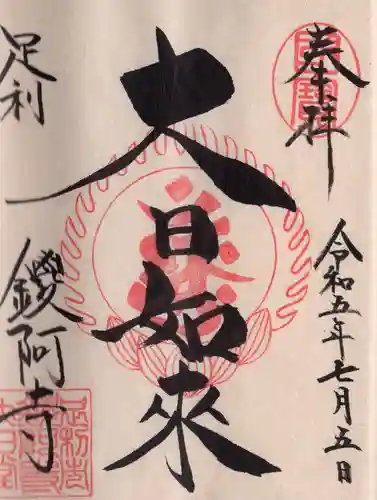 奉拝
令和五年七月五日
大日如来
足利
鑁阿寺